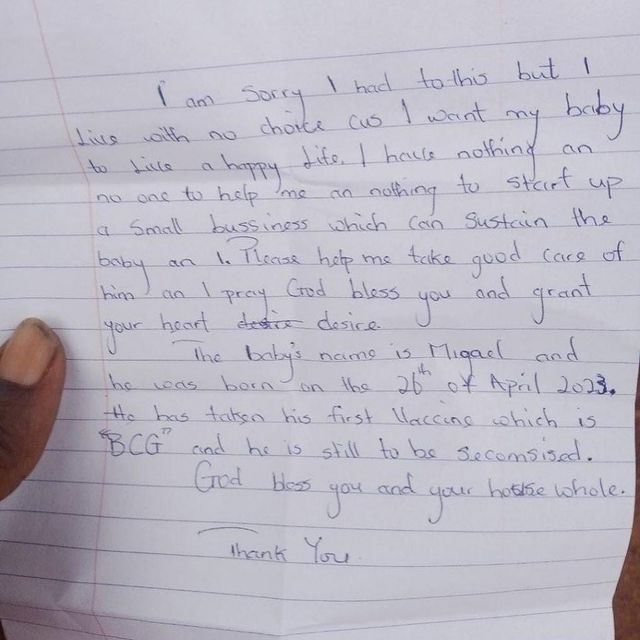 I am sorry I had to this but I
live with no choice cus I want my baby
to live a happy life. I have nothing an
no one to help me an nothing to start up
a small bussiness which can sustain the
baby an I. Please help me take good care of
him an I pray God bless you and grant
your heart desire desire
The baby's name is Migael and
he was born on the 26th of April 2023.
He has taken his first Vaccine which is
"BCG" and he is still to be secomsised.
God bless you and your house whole.
Thank You.